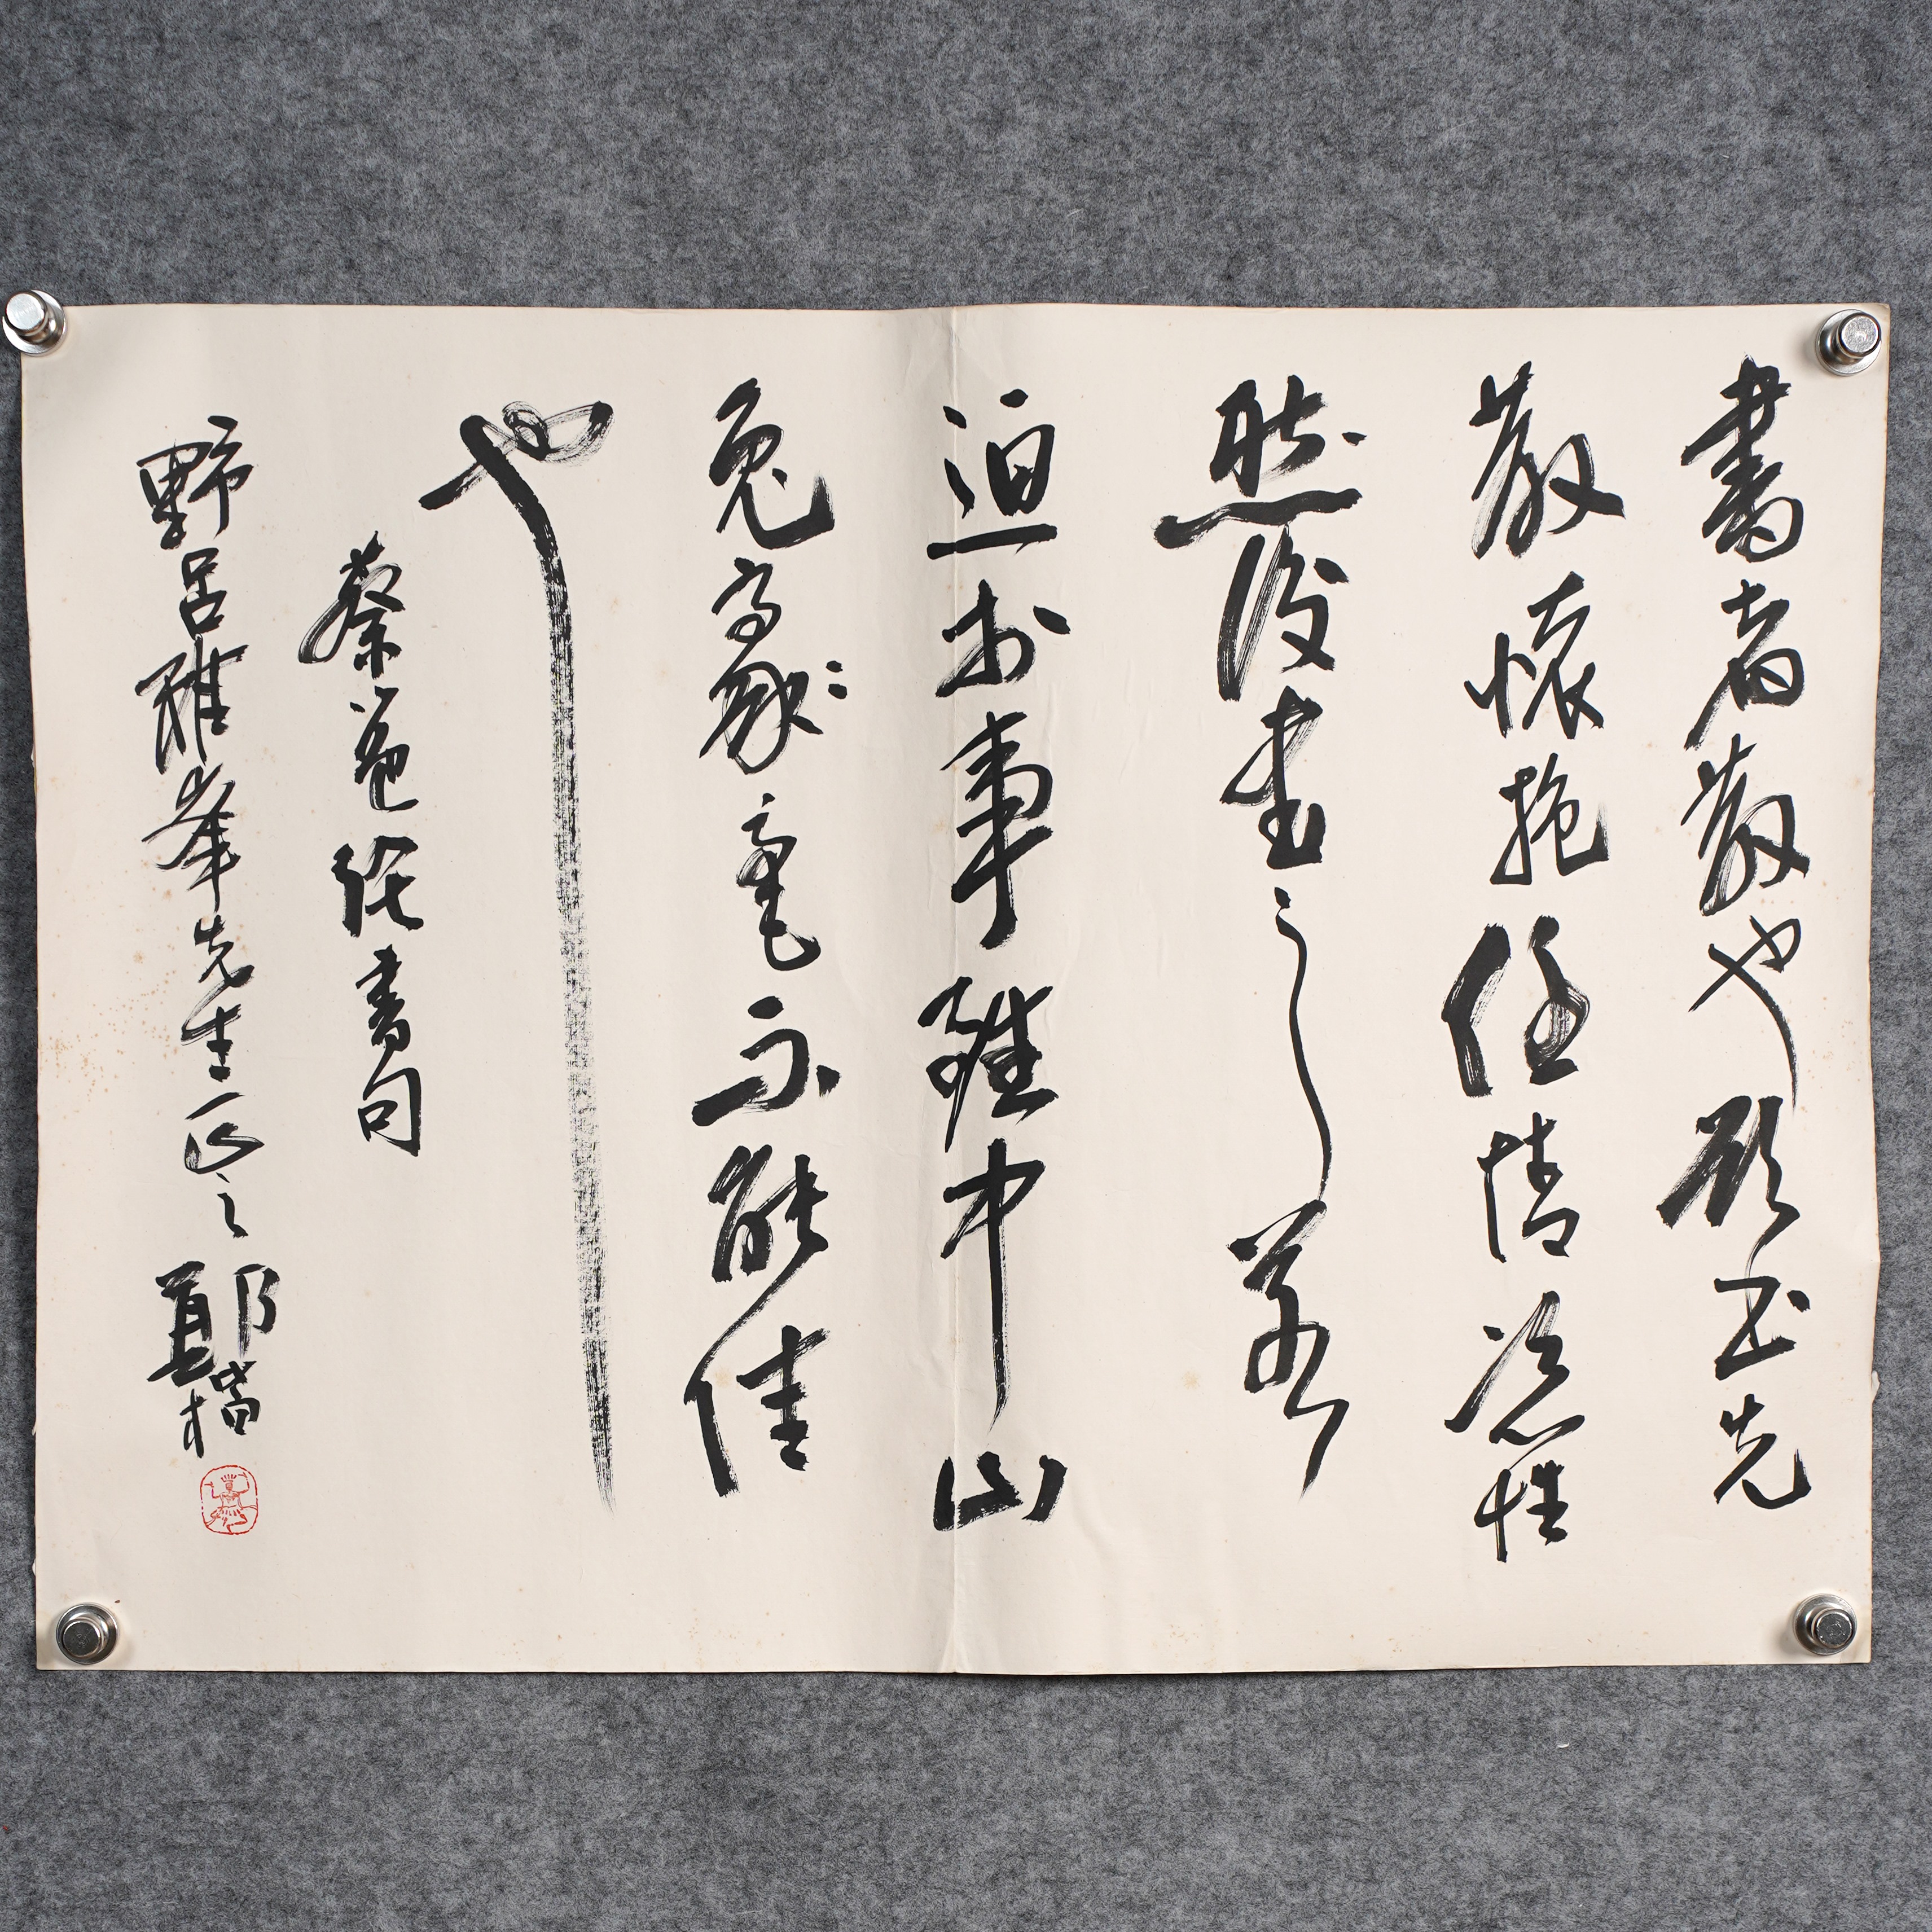 書者散也欲書先
散懷抱任情恣性
然後書之若
迫於事雖中山
兔豪毫不能佳
也
蔡邕論書句
野呂雅峯先生正之